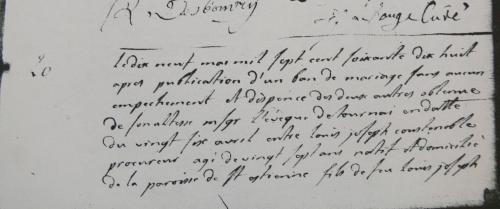 Desbonnez
Curé
20
le dix neuf mai mil sept cent soixante dix huit
apres publication d'un ban de mariage sans aucun
empechement et dispence des deux autres obtenue
de son altesse msgr l'éveque de tournai en datte
du vingt six avril entre louis joseph constenoble
procureur agé de vingt sept ans natif et domicilié
de la paroisse de st etienne fils de feu louis joseph